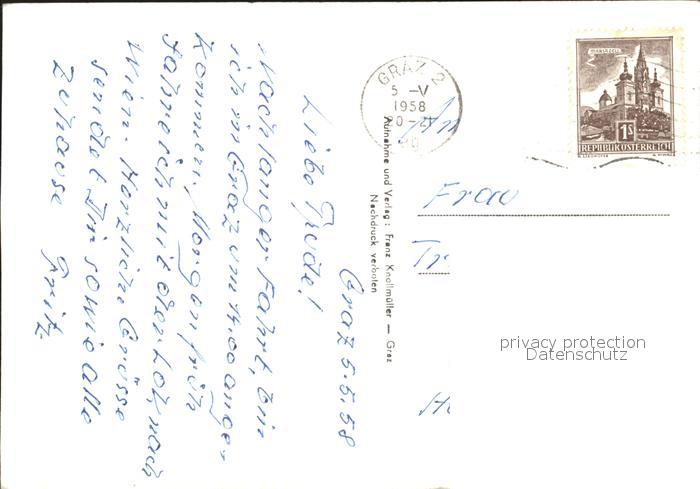 Graz 5.5.58
Liebe Trude!
Nach langer Fahrt, bin
ich in Graz um 14.00 ange-
kommen. Morgen früh
fahre ich mit der Lok, nach
Wien. Herzliche Grüsse
sendet Dir sowie alle
Zuhause Fritz
Aufnahme und Verlag: Franz Knollmüller — Graz
Nachdruck verboten
GRAZ 2
5 -V
1958
20-21
MARIAZELL
1S
REPUBLIK ÖSTERREICH
An
Frau
Tr
privacy protection
Datenschutz